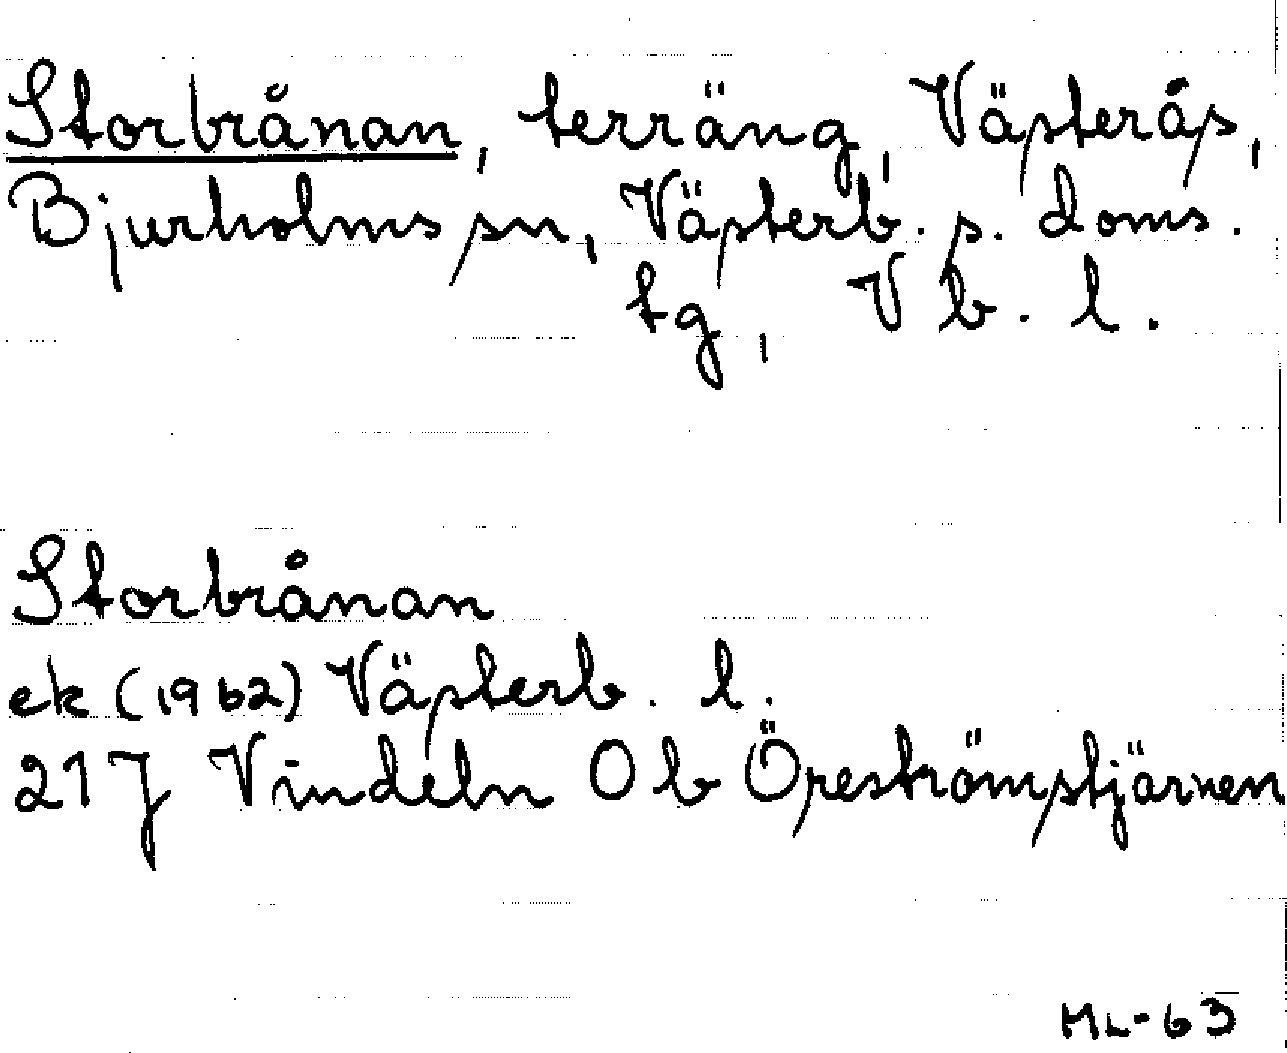 Storbrånan, terräng, Västerås,
Bjurholms sn, Västerb. s. doms.
tg, Vb. l.
Storbrånan
ek (1962) Västerb. l.
21J Vindeln 0b Öreströmstjärnen
ML-63